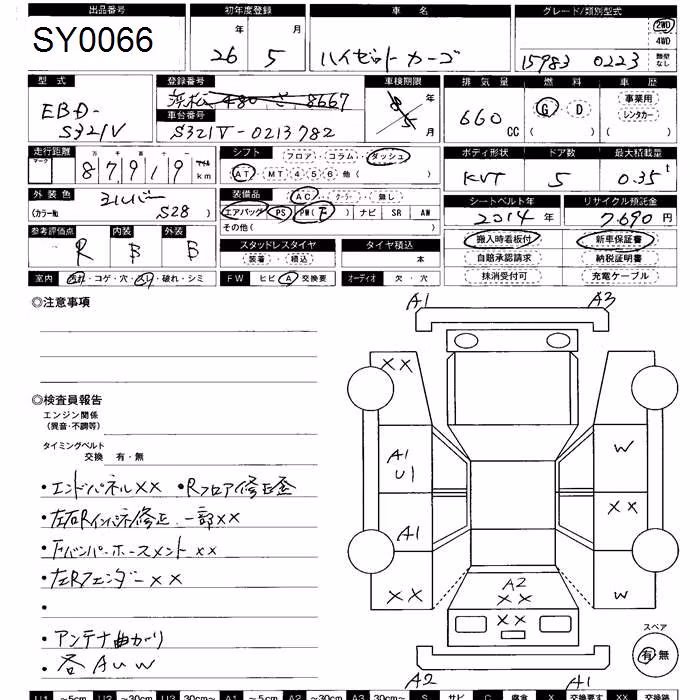 出品番号 初年度登録 車名 グレード/類別型式
SY0066 26年 5月 ハイゼットカーゴ 15983 0223 2WD 4WD 類型なし
型式 登録番号 車検期限 排気量 燃料 車歴
EBD-S321V 浜松 480 さ 8667 年 月 660 CC G・D ( ) 事業用 レンタカー ( )
車台番号
S321V-0213782
走行距離 シフト フロア・コラム・ダッシュ ボディ形状 ドア数 最大積載量
マーク 87919 マイル km AT・MT 4 5 6 他( ) 5 0.35t
外装色 装備品 AC・クーラー・無し シートベルト年 リサイクル預託金
シルバー (カラーNo. S28) エアバッグ PS PW(F) ナビ SR AW 2014年 7,690円
その他( )
参考評価点 内装 外装 スタッドレスタイヤ タイヤ積込 搬入時看板付 新車保証書
R B B 装着・積込 本 自賠承認請求 納税証明書
抹消受付可 充電ケーブル
室内 コゲ・穴 破れ・シミ FW ヒビ A 交換要 オーディオ 欠・穴
◎注意事項
A1 A3
XX
◎検査員報告
エンジン関係
(異音・不調等)
タイミングベルト
交換 有・無
A1 U1 W
・エンドパネルXX ・Rフロア修正歪
XX
・左右Rインパネ修正、一部XX
A1
・Rバンパーホースメント XX
・左Rフェンダー XX
A2 XX
XX XX W
・
・アンテナ曲がり
・各AUW
スペア
有 無
A2 A1
U1 ~5cm U2 ~30cm U3 30cm~ A1 ~5cm A2 ~30cm A3 30cm~ S サビ C 腐食 X 交換要す XX 交換跡